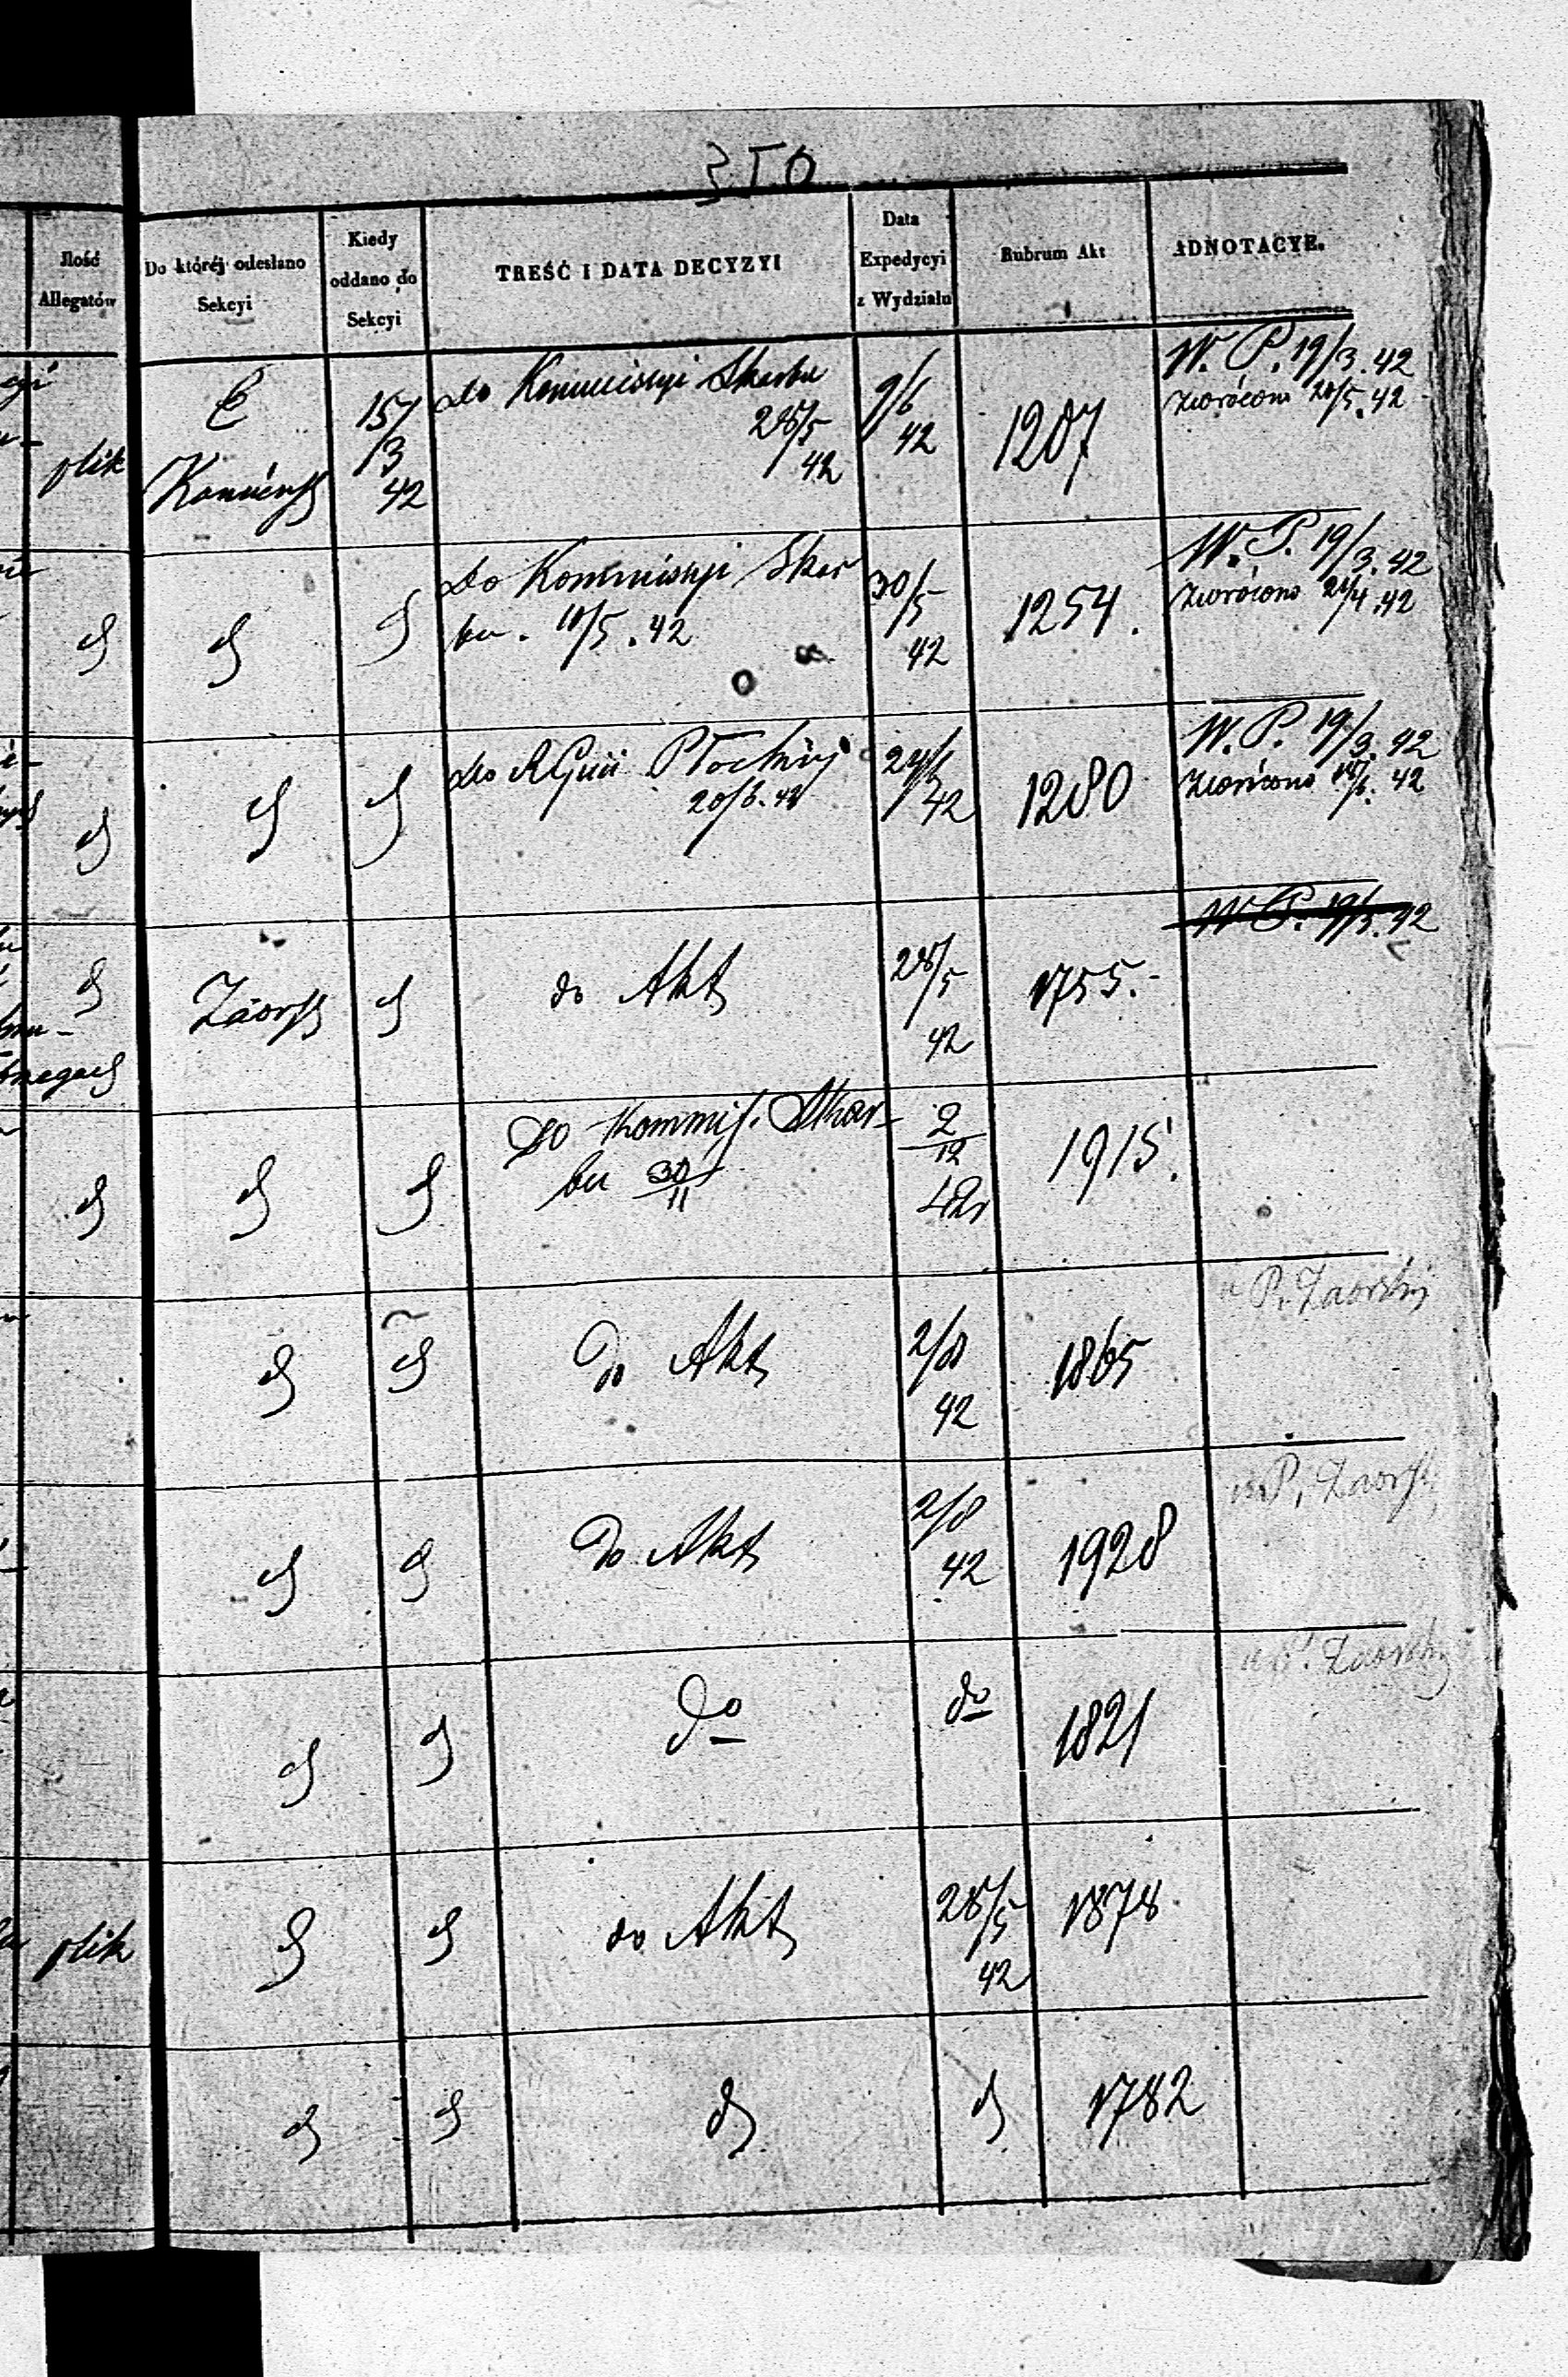 350
Jlość Allegatów
Do któréj odesłano Sekcyi
Kiedy oddano do Sekcyi
TREŚĆ I DATA DECYZYI
Data Expedycyi z Wydziału
Rubrum Akt
ADNOTACYE.
plik
15/3 42
do Kommissyi Skarbu
28/5 42
9/6 42
1207
W. P. 19/3. 42
zwrócono 20/5. 42
do Kommissyi Skar
bu. 10/5. 42
30/5 42
1254.
W. P. 19/3. 42
zwrócono 42
do RGuii Płockiéj
20/6. 42
42
1280
W. P. 19/3. 42
zwrócono 42
do Akt
28/5 42
1755.
W P. 19/3. 42
Do Kommis. Skar-
bu 30/11
2/12 42
1915.
do Akt
2/8 42
1865
P. Zaorski
do Akt
2/8 42
1928
P. Zaorsk
do
do
1821
P. Zaorski
plik
do Akt
28/5 42
1878
1782